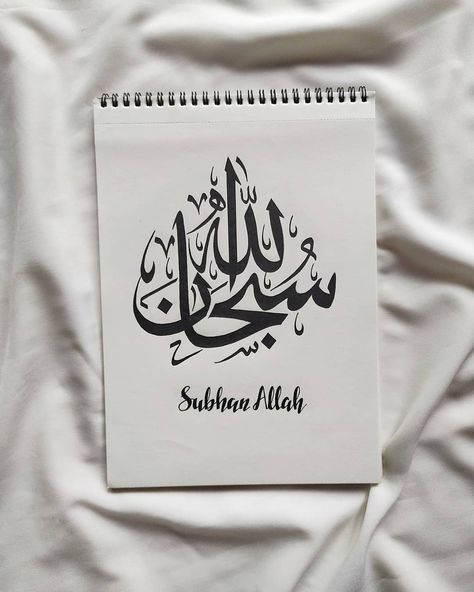 سُبْحَانَ اللّٰهِ
Subhan Allah